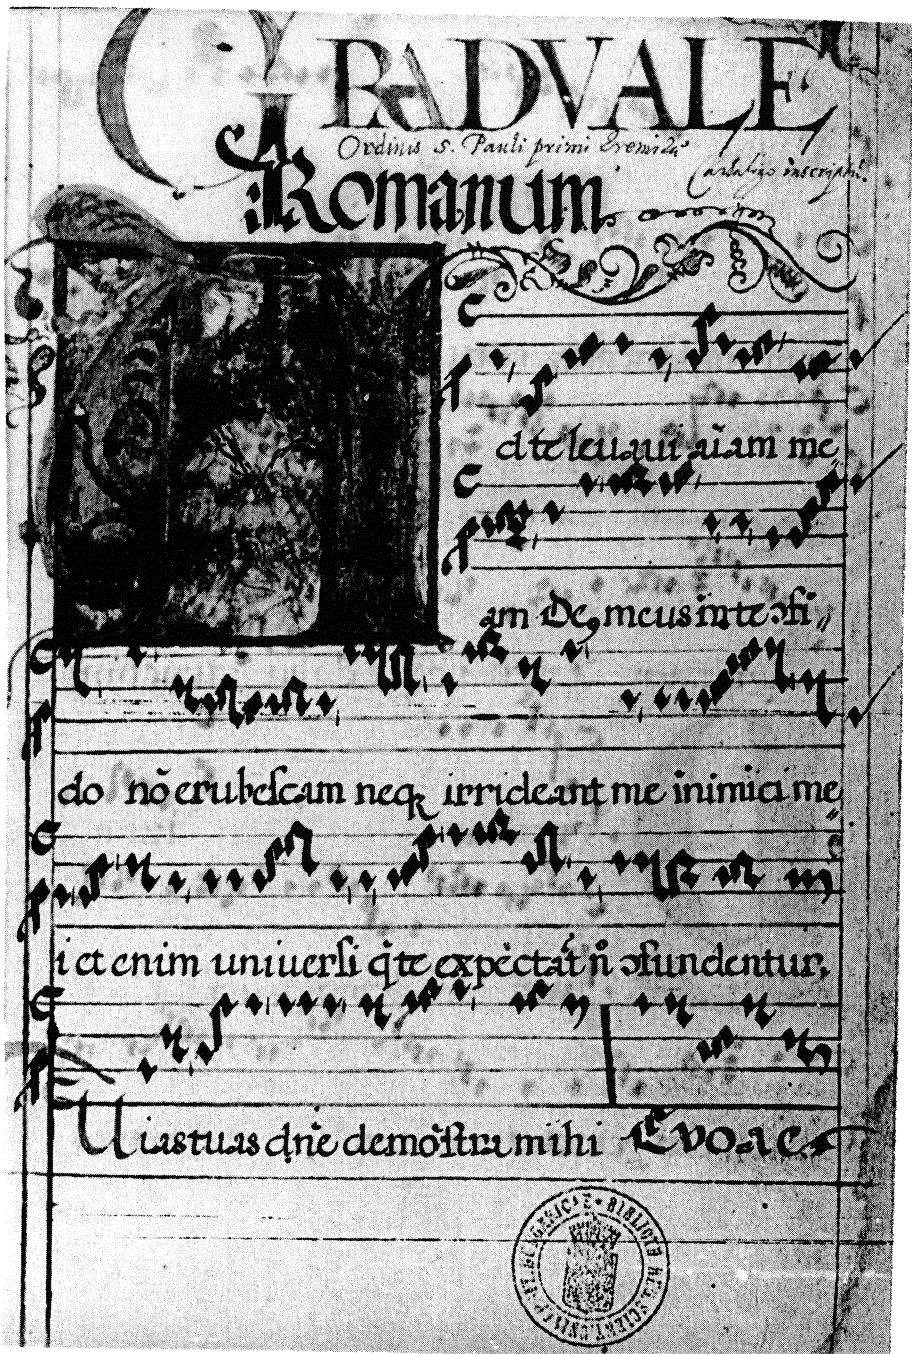 GRADVALE
Ordinis S. Pauli primi Eremitæ
Romanum
d te leuaui aīam me
am De9 meus in te ɔfi
do nō erubescam neq irrideant me inimici me
i et enim uniuersi q̇ te expectāt n̄ ɔfundentur,
Uias tuas dn̄e demōstra mihi Evoae